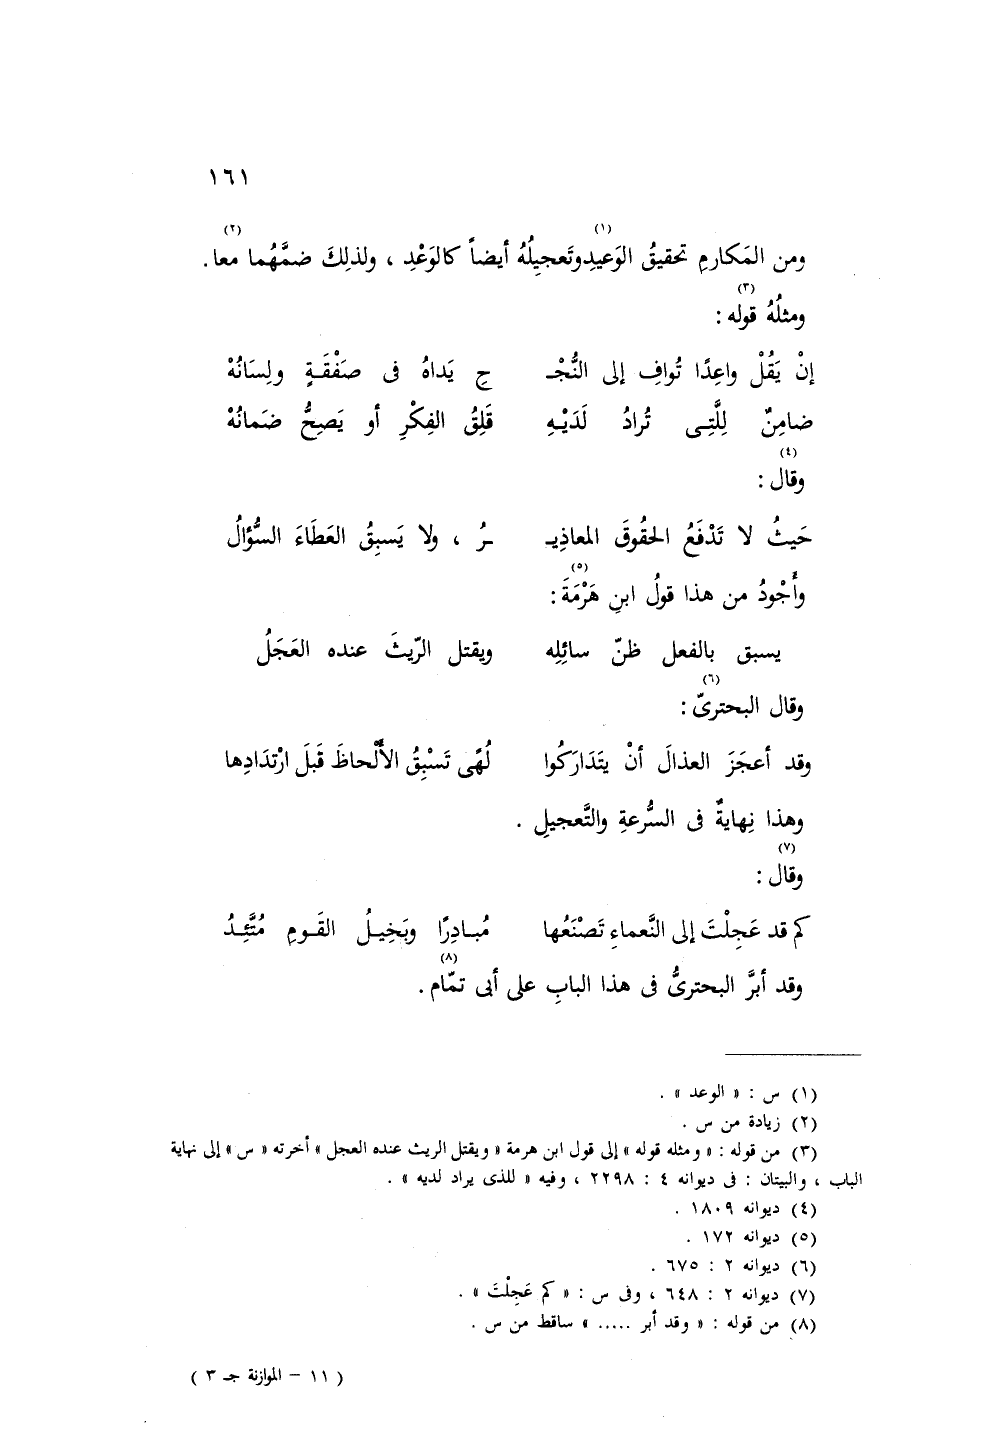 ١٦١
ومن المَكارمِ تحقيقُ الوَعيدِ(١) وتَعجيلُهُ أيضاً كالوَعْدِ ، ولذلِكَ ضمَّهُما معا(٢) .
ومثلُهُ قوله(٣) :
إنْ يَقُلْ واعِدًا تُوافِ إلى النُّجْـ ـحِ يَداهُ فى صَفْقَـةٍ ولِسَانُهْ
ضامِنٌ لِلَّتِـى تُرادُ لَدَيْـهِ قَلِقُ الفِكْرِ أو يَصِحُّ ضَمانُهْ
وقال(٤) :
حَيثُ لا تَدْفَعُ الحقُوقَ المعاذِيـ ـرُ ، ولا يَسبِقُ العَطَاءَ السُّؤالُ
وأَجْودُ من هذا قولُ ابنِ هَرْمَةَ(٥) :
يسبق بالفعل ظنّ سائِلِه ويقتل الرّيثَ عنده العَجَلُ
وقال البحترىّ(٦) :
وقد أعجَزَ العذالَ أنْ يتَدَارَكُوا لُهًى تَسْبِقُ الأَلْحاظَ قَبلَ ارْتدَادِها
وهذا نِهايةٌ فى السُّرعةِ والتَّعجيلِ .
وقال(٧) :
كم قد عَجِلْتَ إلى النَّعماءِ تَصْنَعُها مُبـادِرًا وبَخِيـلُ القَـومِ مُتَّئِـدُ
وقد أبرَّ البحترىُّ فى هذا البابِ على أبى تمّام(٨) .
(١) س : « الوعد » .
(٢) زيادة من س .
(٣) من قوله : « ومثله قوله » إلى قول ابن هرمة « ويقتل الريث عنده العجل » أخرته « س » إلى نهاية
الباب ، والبيتان : فى ديوانه ٤ : ٢٢٩٨ ، وفيه « للذى يراد لديه » .
(٤) ديوانه ١٨٠٩ .
(٥) ديوانه ١٧٢ .
(٦) ديوانه ٢ : ٦٧٥ .
(٧) ديوانه ٢ : ٦٤٨ ، وفى س : « كم عَجِلْتَ » .
(٨) من قوله : « وقد أبر ..... » ساقط من س .
( ١١ – الموازنة جـ ٣ )